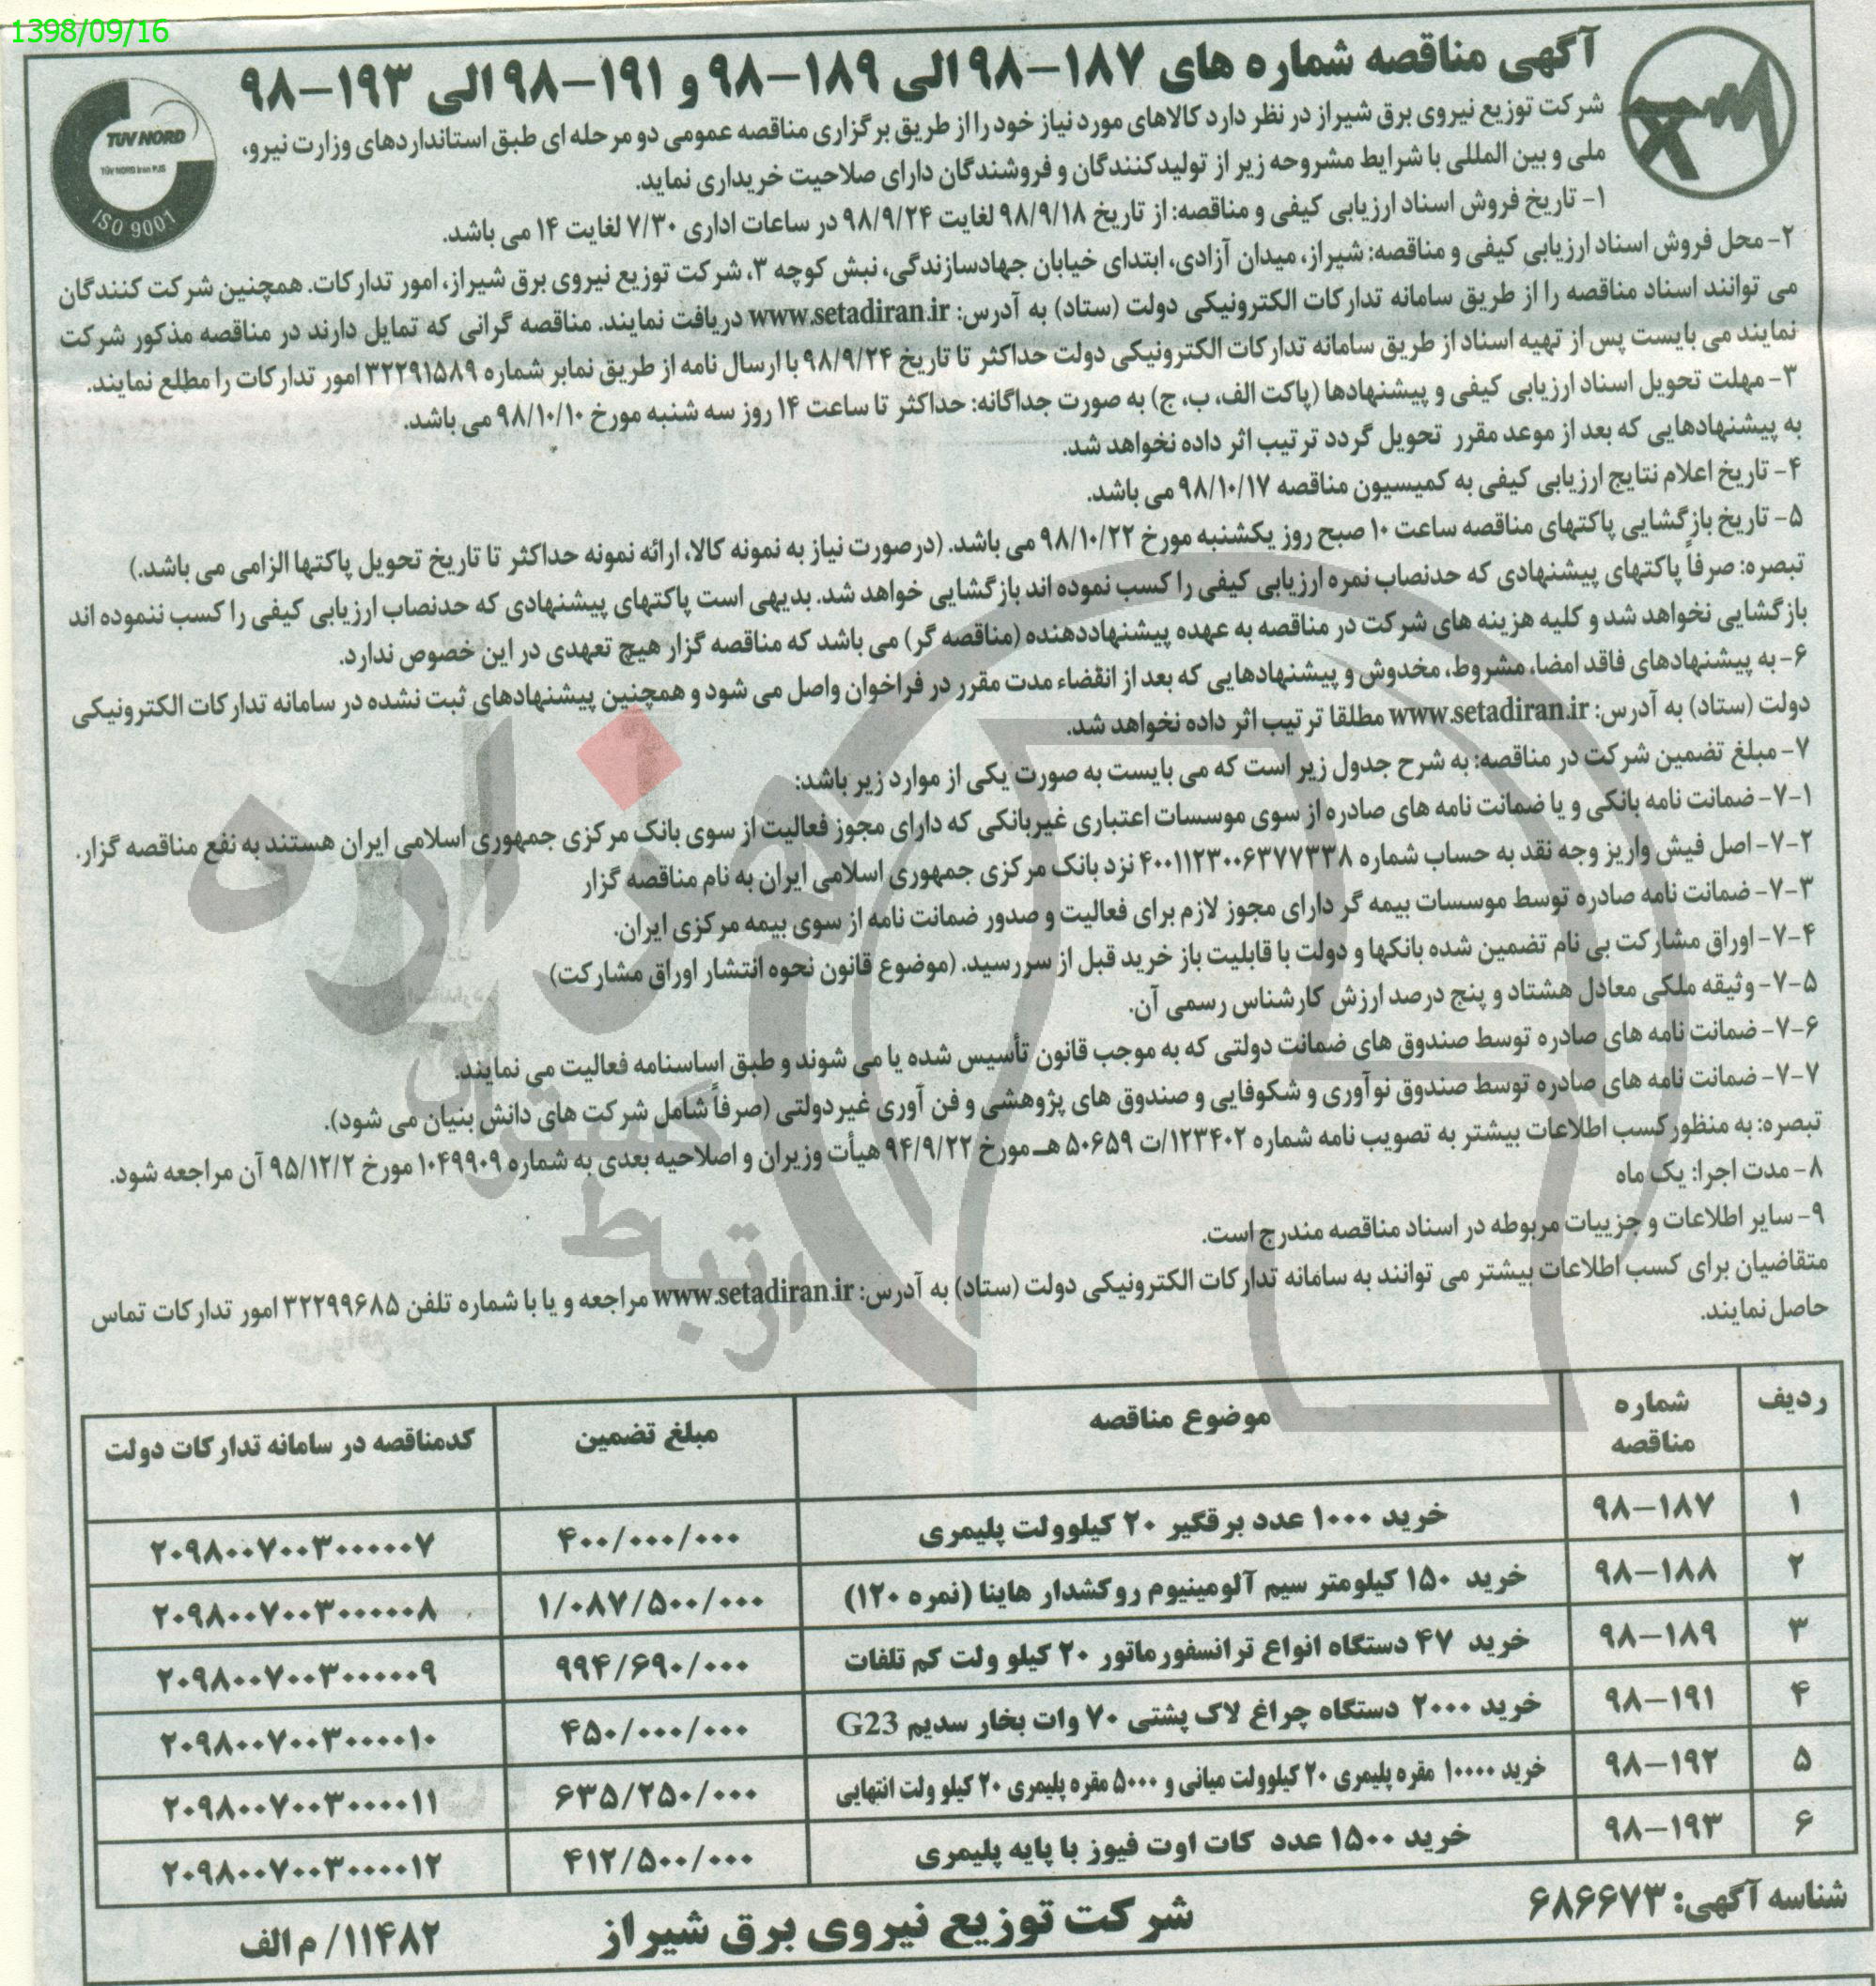 1398/09/16
آگهی مناقصه شماره های ۱۸۷–۹۸ الی ۱۸۹–۹۸ و ۱۹۱–۹۸ الی ۱۹۳–۹۸
TUV NORD
TUV NORD Iran PJS
ISO 9001
شرکت توزیع نیروی برق شیراز در نظر دارد کالاهای مورد نیاز خود را از طریق برگزاری مناقصه عمومی دو مرحله ای طبق استانداردهای وزارت نیرو،
ملی و بین المللی با شرایط مشروحه زیر از تولیدکنندگان و فروشندگان دارای صلاحیت خریداری نماید.
۱- تاریخ فروش اسناد ارزیابی کیفی و مناقصه: از تاریخ ۹۸/۹/۱۸ لغایت ۹۸/۹/۲۴ در ساعات اداری ۷/۳۰ لغایت ۱۴ می باشد.
۲- محل فروش اسناد ارزیابی کیفی و مناقصه: شیراز، میدان آزادی، ابتدای خیابان جهادسازندگی، نبش کوچه ۳، شرکت توزیع نیروی برق شیراز، امور تدارکات. همچنین شرکت کنندگان
می توانند اسناد مناقصه را از طریق سامانه تدارکات الکترونیکی دولت (ستاد) به آدرس: www.setadiran.ir دریافت نمایند. مناقصه گرانی که تمایل دارند در مناقصه مذکور شرکت
نمایند می بایست پس از تهیه اسناد از طریق سامانه تدارکات الکترونیکی دولت حداکثر تا تاریخ ۹۸/۹/۲۴ با ارسال نامه از طریق نمابر شماره ۳۲۲۹۱۵۸۹ امور تدارکات را مطلع نمایند.
۳- مهلت تحویل اسناد ارزیابی کیفی و پیشنهادها (پاکت الف، ب، ج) به صورت جداگانه: حداکثر تا ساعت ۱۴ روز سه شنبه مورخ ۹۸/۱۰/۱۰ می باشد.
به پیشنهادهایی که بعد از موعد مقرر تحویل گردد ترتیب اثر داده نخواهد شد.
۴- تاریخ اعلام نتایج ارزیابی کیفی به کمیسیون مناقصه ۹۸/۱۰/۱۷ می باشد.
۵- تاریخ بازگشایی پاکتهای مناقصه ساعت ۱۰ صبح روز یکشنبه مورخ ۹۸/۱۰/۲۲ می باشد. (درصورت نیاز به نمونه کالا، ارائه نمونه حداکثر تا تاریخ تحویل پاکتها الزامی می باشد.)
تبصره: صرفاً پاکتهای پیشنهادی که حدنصاب نمره ارزیابی کیفی را کسب نموده اند بازگشایی خواهد شد. بدیهی است پاکتهای پیشنهادی که حدنصاب ارزیابی کیفی را کسب ننموده اند
بازگشایی نخواهد شد و کلیه هزینه های شرکت در مناقصه به عهده پیشنهاددهنده (مناقصه گر) می باشد که مناقصه گزار هیچ تعهدی در این خصوص ندارد.
۶- به پیشنهادهای فاقد امضا، مشروط، مخدوش و پیشنهادهایی که بعد از انقضاء مدت مقرر در فراخوان واصل می شود و همچنین پیشنهادهای ثبت نشده در سامانه تدارکات الکترونیکی
دولت (ستاد) به آدرس: www.setadiran.ir مطلقا ترتیب اثر داده نخواهد شد.
۷- مبلغ تضمین شرکت در مناقصه: به شرح جدول زیر است که می بایست به صورت یکی از موارد زیر باشد:
۷-۱- ضمانت نامه بانکی و یا ضمانت نامه های صادره از سوی موسسات اعتباری غیربانکی که دارای مجوز فعالیت از سوی بانک مرکزی جمهوری اسلامی ایران هستند به نفع مناقصه گزار.
۷-۲- اصل فیش واریز وجه نقد به حساب شماره ۴۰۰۱۱۲۳۰۰۶۳۷۷۳۳۸ نزد بانک مرکزی جمهوری اسلامی ایران به نام مناقصه گزار
۷-۳- ضمانت نامه صادره توسط موسسات بیمه گر دارای مجوز لازم برای فعالیت و صدور ضمانت نامه از سوی بیمه مرکزی ایران.
۷-۴- اوراق مشارکت بی نام تضمین شده بانکها و دولت با قابلیت باز خرید قبل از سررسید. (موضوع قانون نحوه انتشار اوراق مشارکت)
۷-۵- وثیقه ملکی معادل هشتاد و پنج درصد ارزش کارشناس رسمی آن.
۷-۶- ضمانت نامه های صادره توسط صندوق های ضمانت دولتی که به موجب قانون تأسیس شده یا می شوند و طبق اساسنامه فعالیت می نمایند.
۷-۷- ضمانت نامه های صادره توسط صندوق نوآوری و شکوفایی و صندوق های پژوهشی و فن آوری غیردولتی (صرفاً شامل شرکت های دانش بنیان می شود).
تبصره: به منظور کسب اطلاعات بیشتر به تصویب نامه شماره ۱۲۳۴۰۲/ت ۵۰۶۵۹ هـ مورخ ۹۴/۹/۲۲ هیأت وزیران و اصلاحیه بعدی به شماره ۱۰۴۹۹۰۹ مورخ ۹۵/۱۲/۲ آن مراجعه شود.
۸- مدت اجرا: یک ماه
۹- سایر اطلاعات و جزییات مربوطه در اسناد مناقصه مندرج است.
متقاضیان برای کسب اطلاعات بیشتر می توانند به سامانه تدارکات الکترونیکی دولت (ستاد) به آدرس: www.setadiran.ir مراجعه و یا با شماره تلفن ۳۲۲۹۹۶۸۵ امور تدارکات تماس
حاصل نمایند.
ردیف | شماره مناقصه | موضوع مناقصه | مبلغ تضمین | کدمناقصه در سامانه تدارکات دولت
۱ | ۱۸۷–۹۸ | خرید ۱۰۰۰ عدد برقگیر ۲۰ کیلوولت پلیمری | ۴۰۰/۰۰۰/۰۰۰ | ۲۰۹۸۰۰۷۰۰۳۰۰۰۰۰۷
۲ | ۱۸۸–۹۸ | خرید ۱۵۰ کیلومتر سیم آلومینیوم روکشدار هاینا (نمره ۱۲۰) | ۱/۰۸۷/۵۰۰/۰۰۰ | ۲۰۹۸۰۰۷۰۰۳۰۰۰۰۰۸
۳ | ۱۸۹–۹۸ | خرید ۴۷ دستگاه انواع ترانسفورماتور ۲۰ کیلو ولت کم تلفات | ۹۹۴/۶۹۰/۰۰۰ | ۲۰۹۸۰۰۷۰۰۳۰۰۰۰۰۹
۴ | ۱۹۱–۹۸ | خرید ۲۰۰۰ دستگاه چراغ لاک پشتی ۷۰ وات بخار سدیم G23 | ۴۵۰/۰۰۰/۰۰۰ | ۲۰۹۸۰۰۷۰۰۳۰۰۰۰۱۰
۵ | ۱۹۲–۹۸ | خرید ۱۰۰۰۰ مقره پلیمری ۲۰ کیلوولت میانی و ۵۰۰۰ مقره پلیمری ۲۰ کیلو ولت انتهایی | ۶۳۵/۲۵۰/۰۰۰ | ۲۰۹۸۰۰۷۰۰۳۰۰۰۰۱۱
۶ | ۱۹۳–۹۸ | خرید ۱۵۰۰ عدد کات اوت فیوز با پایه پلیمری | ۴۱۲/۵۰۰/۰۰۰ | ۲۰۹۸۰۰۷۰۰۳۰۰۰۰۱۲
شناسه آگهی: ۶۸۶۶۷۳
شرکت توزیع نیروی برق شیراز
۱۱۴۸۲/ م الف
هزاره
گسترش
ارتباط